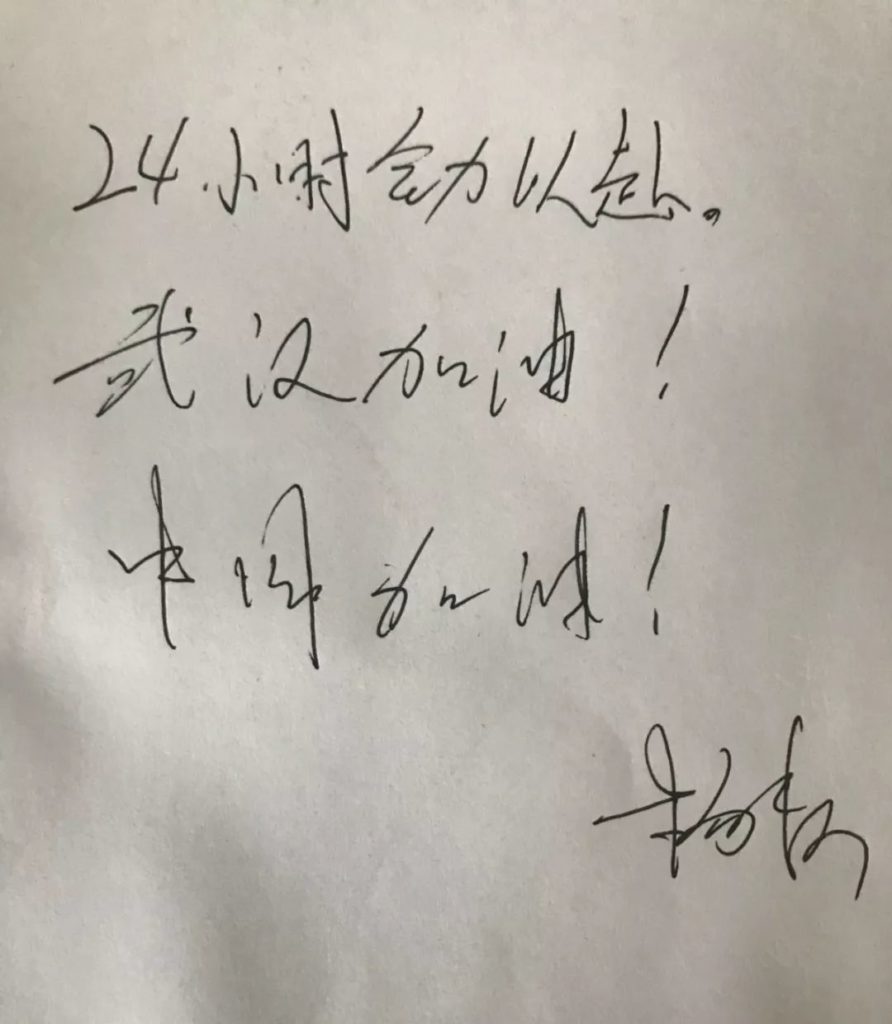 24小时全力以赴。
武汉加油!
中国加油!